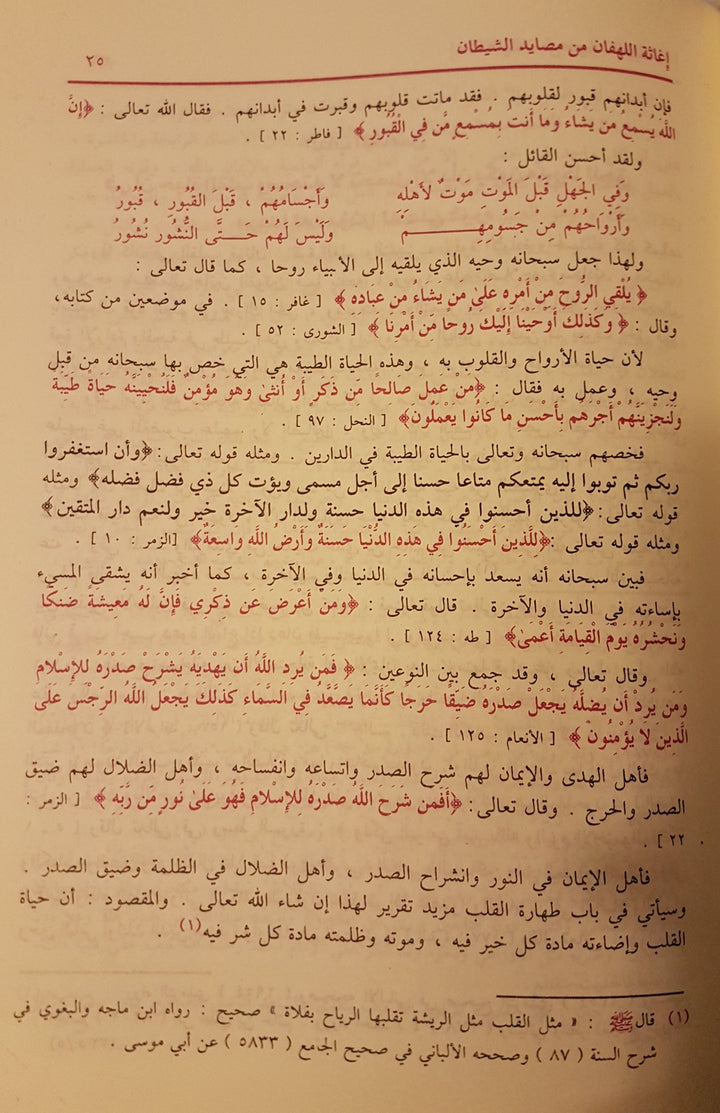 إغاثة اللهفان من مصايد الشيطان
٢٥
فإن أبدانهم قبور لقلوبهم . فقد ماتت قلوبهم وقبرت في أبدانهم . فقال الله تعالى : ﴿إِنَّ
اللَّهَ يُسْمِعُ مَن يَشَاءُ وَمَا أَنتَ بِمُسْمِعٍ مَّن فِي الْقُبُورِ ﴾ [ فاطر : ٢٢ ] .
ولقد أحسن القائل :
وَفِي الجَهْلِ قَبْلَ المَوْتِ مَوْتٌ لأَهْلِهِ وَأَجْسَامُهُمْ ، قَبْلَ القُبُورِ ، قُبُورُ
وَأَرْوَاحُهُمْ مِنْ جَسُومِهِمْ وَلَيْسَ لَهُمْ حَتَّى النُّشُورِ نُشُورُ
ولهذا جعل سبحانه وحيه الذي يلقيه إلى الأنبياء روحا ، كما قال تعالى :
﴿ يُلْقِي الرُّوحَ مِنْ أَمْرِهِ عَلَىٰ مَن يَشَاءُ مِنْ عِبَادِهِ ﴾ [ غافر : ١٥ ] . في موضعين من كتابه،
وقال : ﴿ وَكَذَلِكَ أَوْحَيْنَا إِلَيْكَ رُوحًا مِّنْ أَمْرِنَا ﴾ [ الشورى : ٥٢ ] .
لأن حياة الأرواح والقلوب به ، وهذه الحياة الطيبة هي التي خص بها سبحانه من قبل
وحيه ، وعمل به فقال : ﴿مَنْ عَمِلَ صَالِحًا مِّن ذَكَرٍ أَوْ أُنثَىٰ وَهُوَ مُؤْمِنٌ فَلَنُحْيِيَنَّهُ حَيَاةً طَيِّبَةً
وَلَنَجْزِيَنَّهُمْ أَجْرَهُم بِأَحْسَنِ مَا كَانُوا يَعْمَلُونَ﴾ [ النحل : ٩٧ ] .
فخصهم سبحانه وتعالى بالحياة الطيبة في الدارين . ومثله قوله تعالى: ﴿وأن استغفروا
ربكم ثم توبوا إليه يمتعكم متاعا حسنا إلى أجل مسمى ويؤت كل ذي فضل فضله﴾ ومثله
قوله تعالى: ﴿للذين أحسنوا في هذه الدنيا حسنة ولدار الآخرة خير ولنعم دار المتقين ﴾
ومثله قوله تعالى :﴿لِلَّذِينَ أَحْسَنُوا فِي هَذِهِ الدُّنْيَا حَسَنَةٌ وَأَرْضُ اللَّهِ وَاسِعَةٌ﴾ [الزمر : ١٠ ] .
فبين سبحانه أنه يسعد بإحسانه في الدنيا وفي الآخرة ، كما أخبر أنه يشقى المسيء
بإساءته في الدنيا والآخرة . قال تعالى : ﴿وَمَنْ أَعْرَضَ عَن ذِكْرِي فَإِنَّ لَهُ مَعِيشَةً ضَنكًا
وَنَحْشُرُهُ يَوْمَ الْقِيَامَةِ أَعْمَىٰ﴾ [ طه : ١٢٤ ] .
وقال تعالى ، وقد جمع بين النوعين : ﴿ فَمَن يُرِدِ اللَّهُ أَن يَهْدِيَهُ يَشْرَحْ صَدْرَهُ لِلإِسْلامِ
وَمَن يُرِدْ أَن يُضِلَّهُ يَجْعَلْ صَدْرَهُ ضَيِّقًا حَرَجًا كَأَنَّمَا يَصَّعَّدُ فِي السَّمَاءِ كَذَلِكَ يَجْعَلُ اللَّهُ الرِّجْسَ عَلَى
الَّذِينَ لا يُؤْمِنُونَ ﴾ [ الأنعام : ١٢٥ ] .
فأهل الهدى والإيمان لهم شرح الصدر واتساعه وانفساحه ، وأهل الضلال لهم ضيق
الصدر والحرج . وقال تعالى: ﴿أَفَمَن شَرَحَ اللَّهُ صَدْرَهُ لِلإِسْلامِ فَهُوَ عَلَىٰ نُورٍ مِّن رَّبِّهِ ﴾ [ الزمر :
٢٢ ] .
فأهل الإيمان في النور وانشراح الصدر ، وأهل الضلال في الظلمة وضيق الصدر .
وسيأتي في باب طهارة القلب مزيد تقرير لهذا إن شاء الله تعالى . والمقصود : أن حياة
القلب وإضاءته مادة كل خير فيه ، وموته وظلمته مادة كل شر فيه(١) .
(١) قال ﷺ : « مثل القلب مثل الريشة تقلبها الرياح بفلاة » صحيح : رواه ابن ماجه والبغوي في
شرح السنة ( ٨٧ ) وصححه الألباني في صحيح الجامع ( ٥٨٣٣ ) عن أبي موسى .